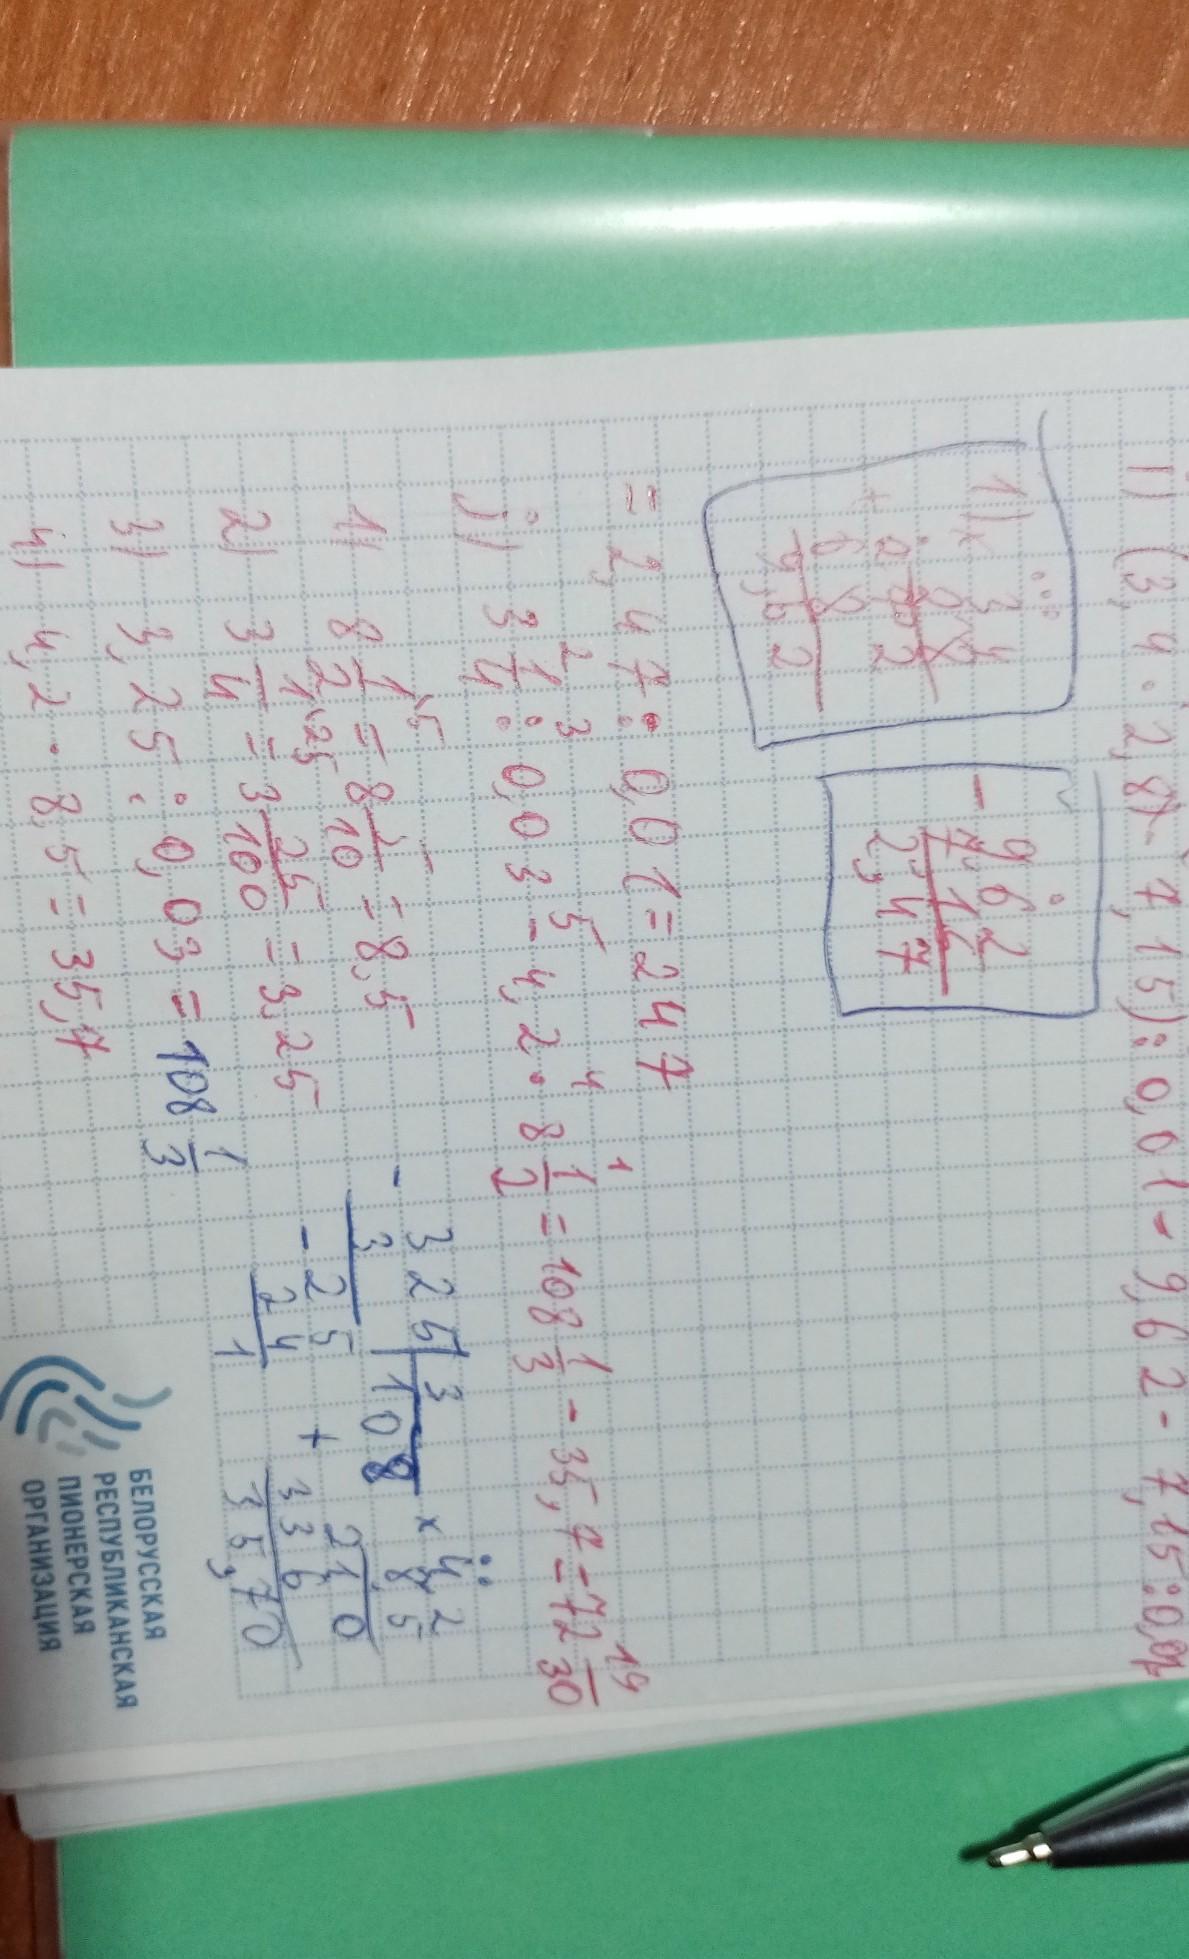 1) (3,4 · 2,8) - 7,15) : 0,01 = 9,62 - 7,15 : 0,01
1) × 3,4
2,8
- 9,62
7,15
2,47
+ 68
9,52
= 2,47 : 0,01 = 247
j) 3 1/4 : 0,03 - 4,2 · 8 1/2 = 108 1/3 - 35,7 = 72 19/30
2 3 5 4 1
1) 8 1/2 = 8 5/10 = 8,5
2) 3 1/4 = 3 25/100 = 3,25
3) 3,25 : 0,03 = 108 1/3
4) 4,2 · 8,5 = 35,7
- 325 | 3
3 108
- 25
24
1
× 4,2
8,5
+ 210
336
35,70
БЕЛОРУССКАЯ
РЕСПУБЛИКАНСКАЯ
ПИОНЕРСКАЯ
ОРГАНИЗАЦИЯ